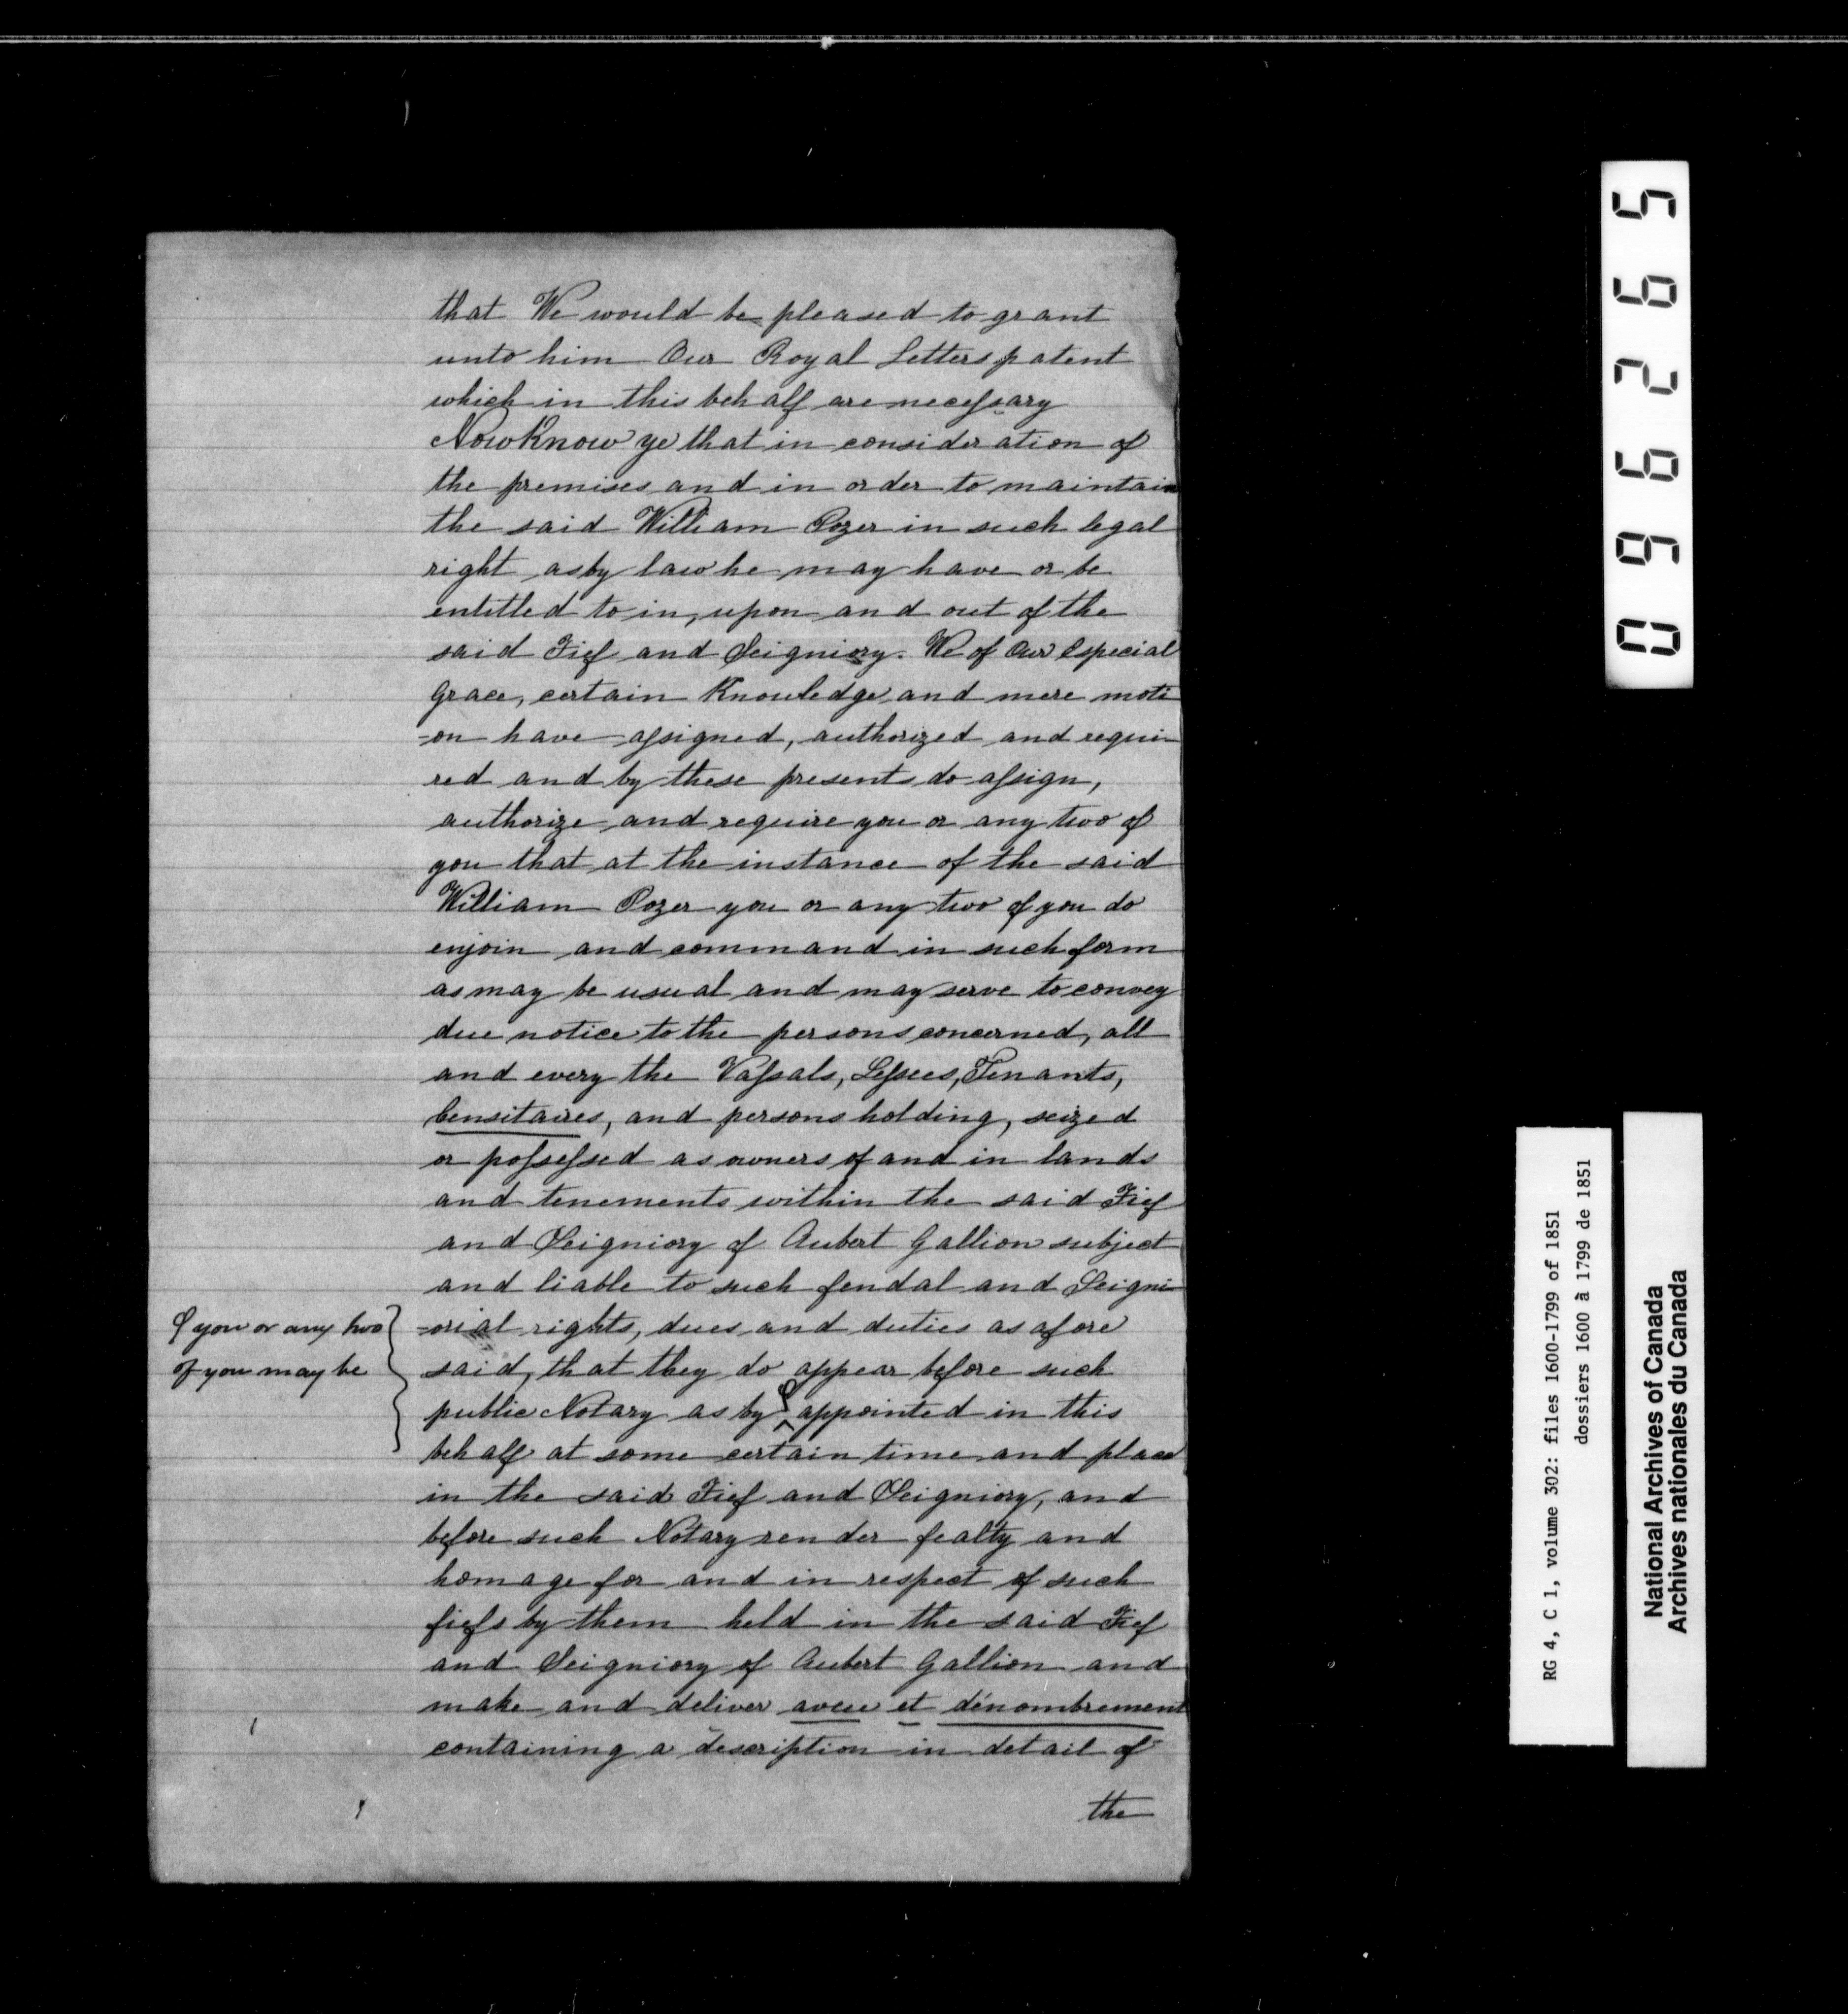 that We would be pleased to grant
unto him Our Royal Letters patent
which in this behalf are necessary
Now Know ye that in consideration of
the premises and in order to maintain
the said William Pozer in such legal
right as by law he may have or be
entitled to in, upon and out of the
said Fief and Seigniory. We of Our Especial
Grace, certain Knowledge and mere moti
-on have assigned, authorized and requi
red and by these presents do assign,
authorize and require you or any two of
you that at the instance of the said
William Pozer you or any two of you do
enjoin and command in such form
as may be usual and may serve to convey
due notice to the persons concerned, all
and every the Vassals, Lessees, Tenants,
Censitaires, and persons holding, seized
or possessed as owners of and in lands
and tenements within the said Fief
and Seigniory of Aubert Gallion subject
and liable to such feudal and Seigni
-orial rights, dues and duties as afore
said, that they do appear before such
public Notary as by appointed in this
behalf at some certain time and place
in the said Fief and Seigniory, and
before such Notary render fealty and
homage for and in respect of such
fiefs by them held in the said Fief
and Seigniory of Aubert Gallion and
make and deliver aveu et dénombrement
containing a description in detail of
the
you or any two
of you may be
096265
RG 4, C 1, volume 302: files 1600-1799 of 1851
dossiers 1600 à 1799 de 1851
National Archives of Canada
Archives nationales du Canada